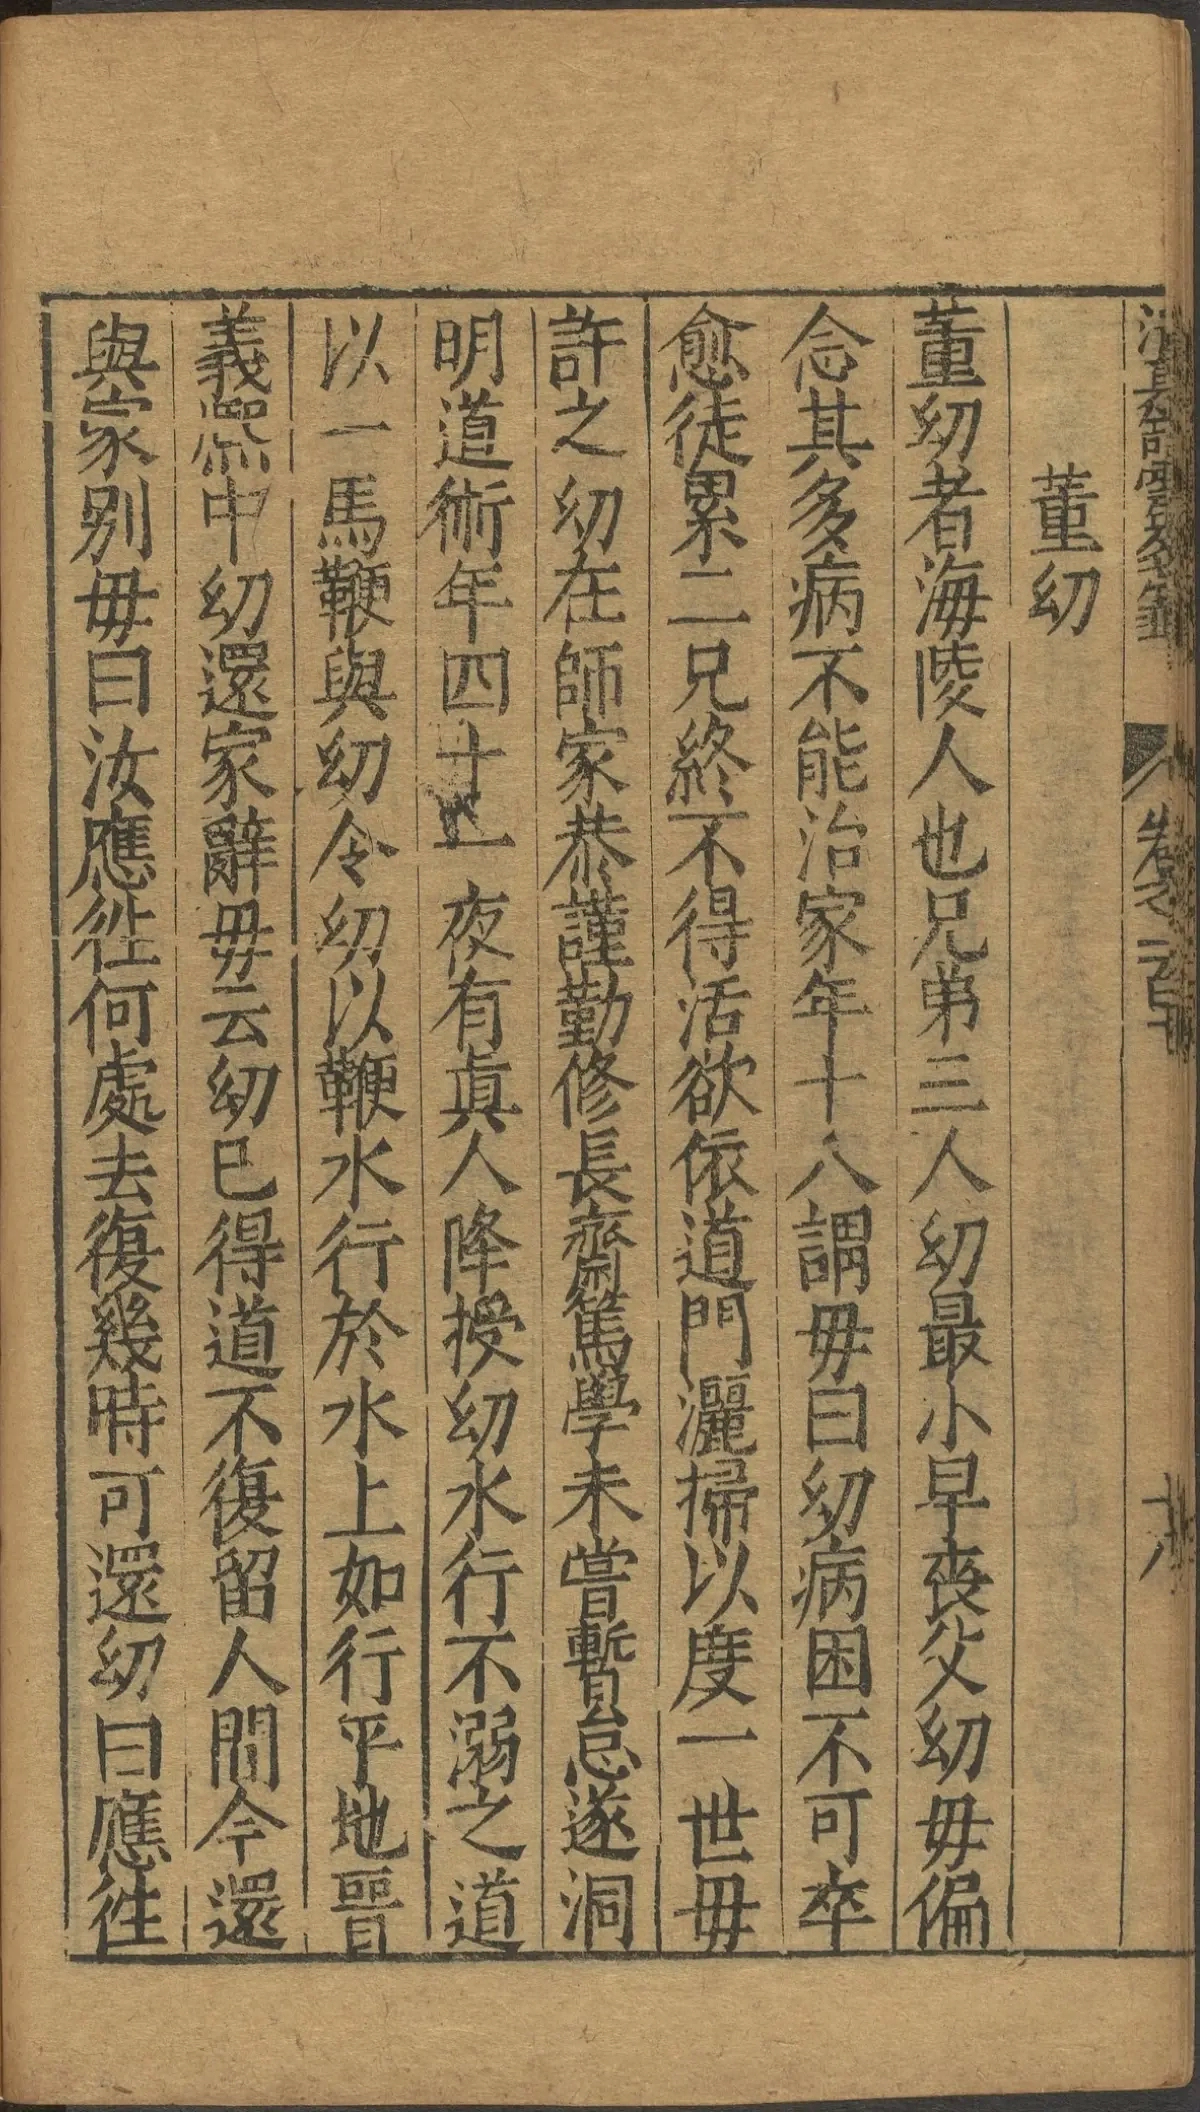 卷之二
十八
董幼
董幼者海陵人也兄弟三人幼最小早丧父幼毋偏
念其多病不能治家年十八謂毋曰幼病困不可卒
愈徒累二兄終不得活欲依道門灑掃以度一世毋
許之幼在師家恭謹勤修長齋篤學未嘗暫怠遂洞
明道術年四十一夜有眞人降授幼水行不溺之道
以一馬鞭與幼令幼以鞭水行於水上如行平地晉
義熙中幼還家辭毋云幼已得道不復留人間今還
與家别毋曰汝應徃何處去復幾時可還幼曰應徃